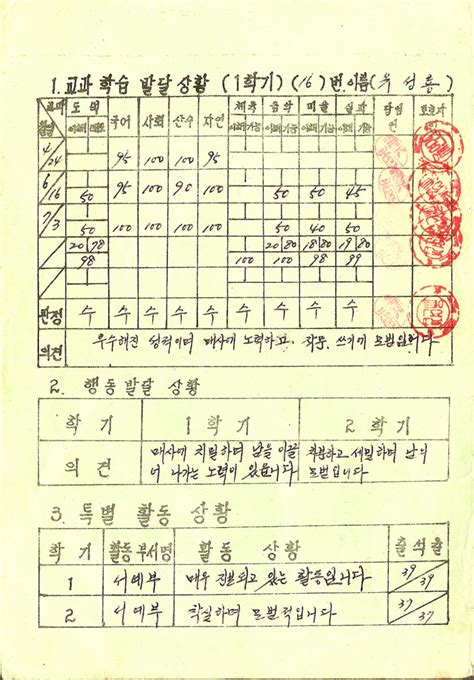 1. 교과 학습 발달 상황 (1학기) (16) 번. 이름(우 성 룡)
교과 도덕 국어 사회 산수 자연 체육 음악 미술 실과 담임 보호자
월일 이해 기능 이해 기능 이해 기능 이해 기능 인
4/24 95 100 100 95
6/16 50 95 100 90 100 50 50 45
7/3 50 100 100 100 100 50 40 50
20 78 20 80 18 80 19 80
98 100 100 98 99
판정 수 수 수 수 수 수 수 수 수
의견 우수해진 성적이며 매사에 노력하고. 작문. 쓰기가 모범입니다
2. 행동발달 상황
학 기 1 학기 2 학기
의 견 매사에 치밀하며 남을 이끌 차분하고 세밀하며 남의
어 나가는 노력이 있읍니다 모범입니다.
3. 특별 활동 상황
학 기 활동 부서명 활 동 상 황 출석율
1 서예부 매우 진보되고 있는 활동입니다 39/39
2 서예부 착실하며 모범적입니다. 37/37